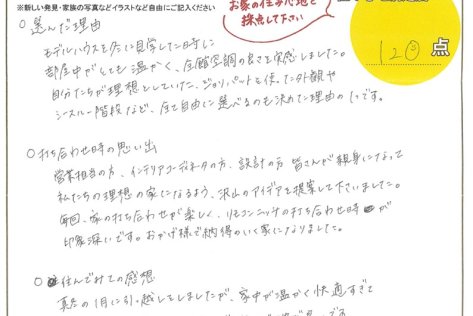 ※新しい発見・家族の写真などイラストなど自由にご記入ください
お家の住み心地を
採点して下さい
120 点
○ 選んだ理由
モデルハウスを冬に見学した時に
部屋中がとても温かく、全館空調の良さを実感しました。
自分たちが理想としていた、ジョリパットを使った外観や
シースルー階段など、全て自由に選べるのも決めた理由の1つです。
○ 打ち合わせ時の思い出
営業担当の方、インテリアコーディネータの方、設計の方 皆さんが親身になって
私たちの理想の家になるよう、沢山のアイデアを提案して下さいました。
毎回、家の打ち合わせが楽しく、リモコンニッチの打ち合わせ時が
印象深いです。おかげ様で納得のいく家になりました。
○ 住んでみての感想
真冬の1月に引っ越しをしましたが、家中が温かく快適すぎて